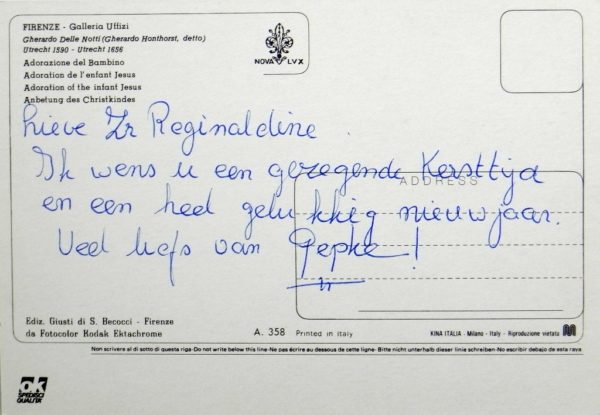 FIRENZE - Galleria Uffizi
Gherardo Delle Notti (Gherardo Honthorst, detto)
Utrecht 1590 - Utrecht 1656
Adorazione del Bambino
Adoration de l'enfant Jesus
Adoration of the infant Jesus
Anbetung des Christkindes
NOVA LVX
Lieve Zr Reginaldine.
Ik wens u een gezegende Kersttijd
ADDRESS
en een heel gelukkig nieuwjaar.
Veel liefs van Gepke!
Ediz. Giusti di S. Becocci - Firenze
da Fotocolor Kodak Ektachrome
A. 358 Printed in Italy
KINA ITALIA - Milano - Italy - Riproduzione vietata
Non scrivere al di sotto di questa riga-Do not write below this line-Ne pas écrire au dessous de cette ligne-Bitte nicht unterhalb dieser linie schreiben-No escribir debajo de esta raya
ok
SPEDISCI
QUALITA'